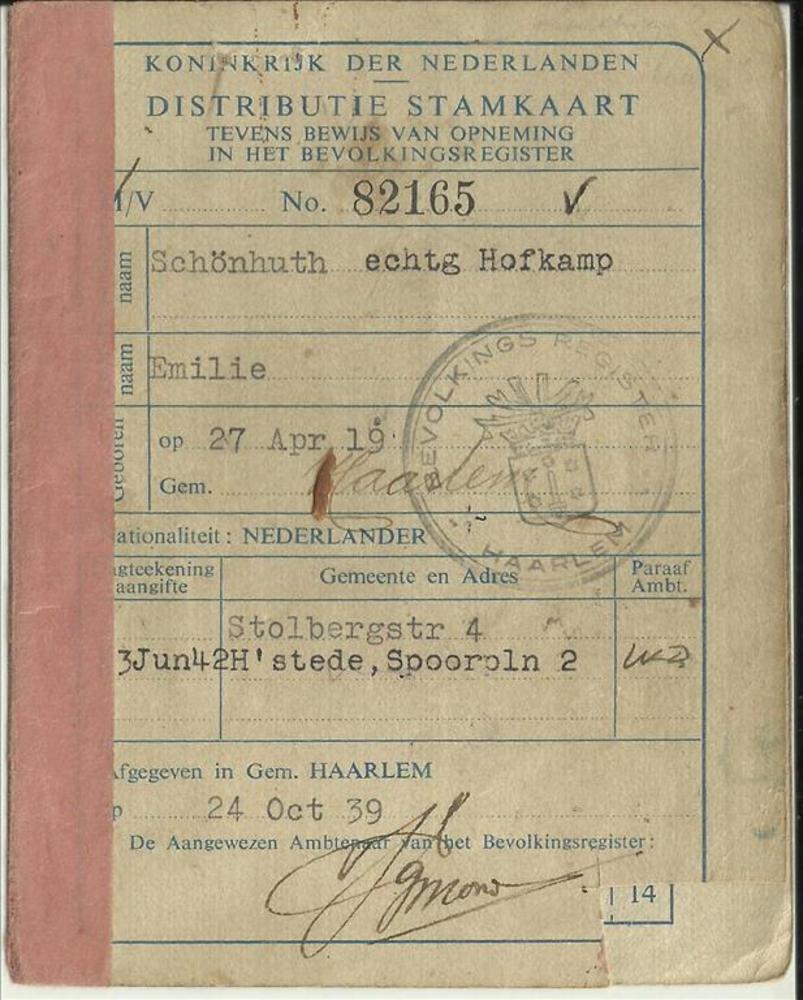 KONINKRIJK DER NEDERLANDEN
DISTRIBUTIE STAMKAART
TEVENS BEWIJS VAN OPNEMING
IN HET BEVOLKINGSREGISTER
/V No. 82165
naam Schönhuth echtg Hofkamp
naam Emilie
Geboren op 27 Apr 19
Gem. Haarlem
BEVOLKINGS REGISTER
HAARLEM
ationaliteit: NEDERLANDER
gteekening Gemeente en Adres Paraaf
aangifte Ambt.
Stolbergstr 4
3Jun42 H'stede, Spoorpln 2
fgegeven in Gem. HAARLEM
p 24 Oct 39
De Aangewezen Ambtenaar van het Bevolkingsregister:
14